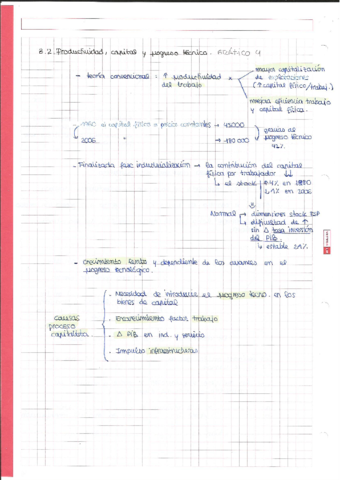 8.2. Productividad, capital y progreso técnico. GRÁFICO 4
- teoría convencional: ↑ productividad del trabajo
mayor capitalización de explotaciones (↑ capital físico/trabaj.)
mayor eficiencia trabajo y capital físico.
capital físico a precio constantes → 45000
2006 " → 180000
gracias al progreso técnico 42%
- Finalizada fase industrialización → la contribución del capital físico por trabajador ↓↓
→ el stock
en 2006
Normal → dimensiones stock
→ dificultad de ↑ sin Δ tasa inversión del PIB
→ estable 24%
- Crecimiento lento y dependiente de los avances en el progreso tecnológico.
causas proceso capitalista
· Necesidad de introducir el progreso tecno. en los bienes de capital
· Encarecimiento factor trabajo
· Δ PIB en ind. y servicio
· Impulso infraestructuras